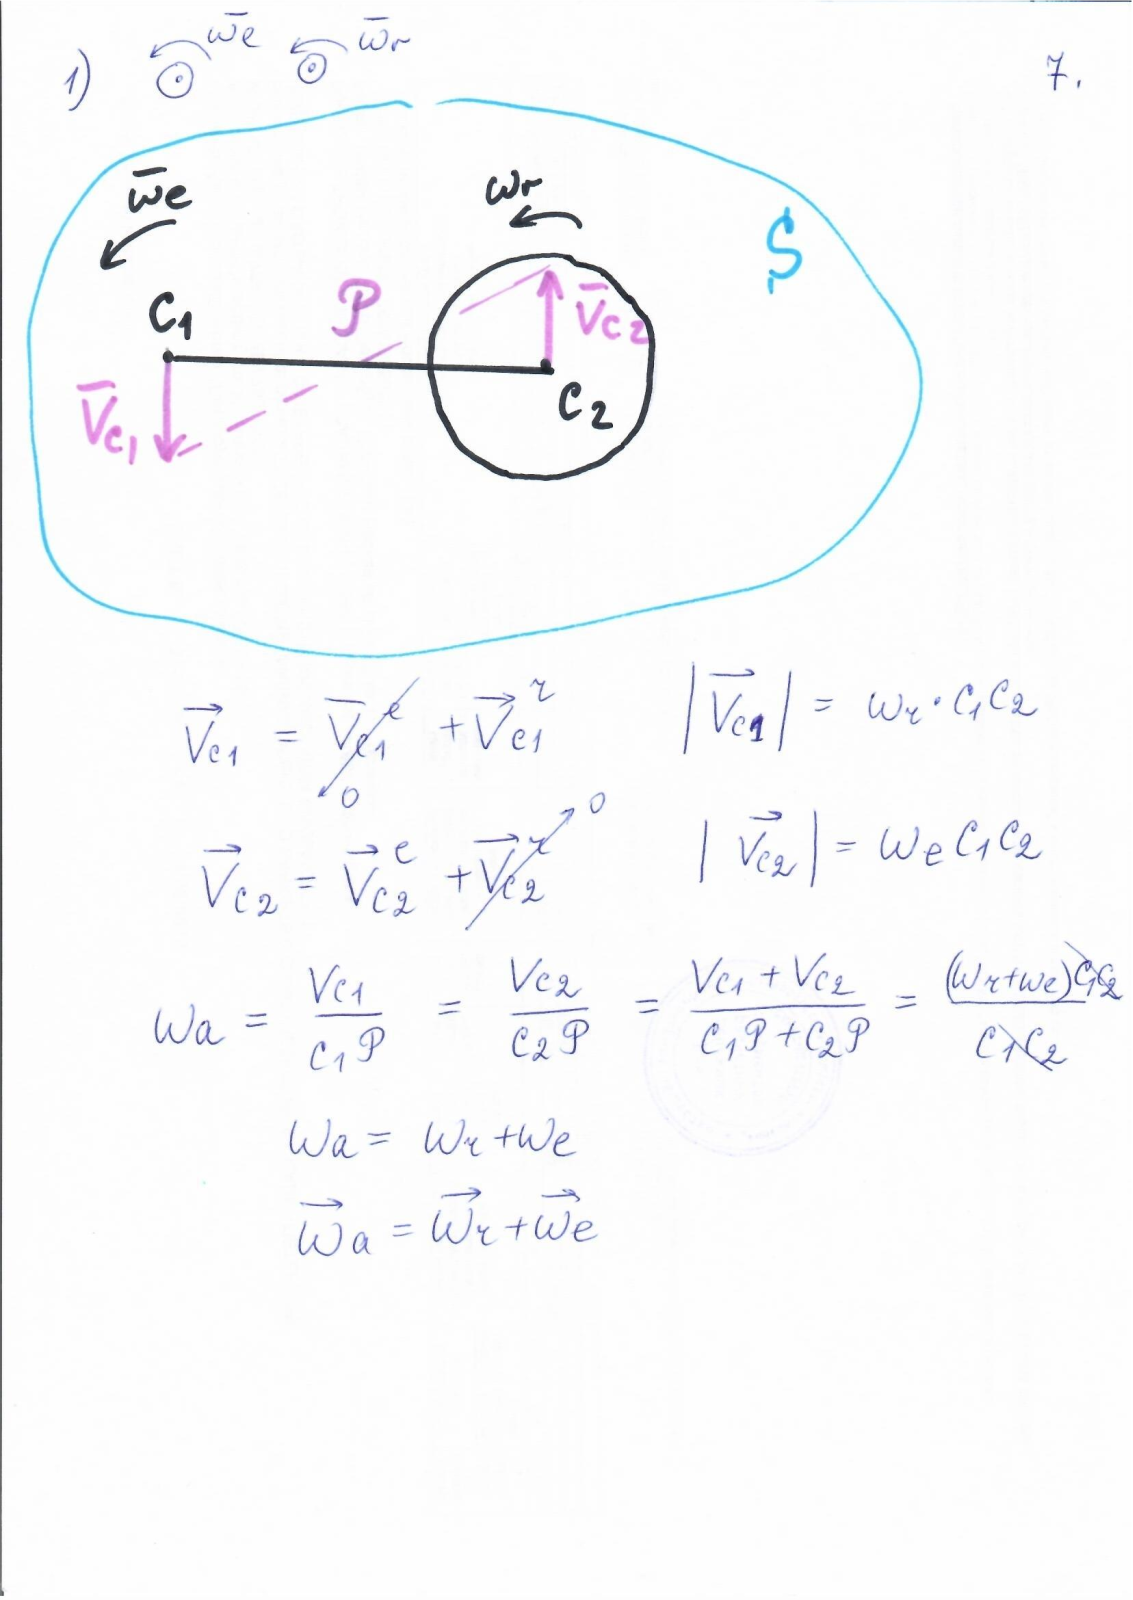 1) ω̄e ω̄r 7.
ω̄e ωr S
C₁ P V̄c₂
V̄c₁ C₂
V⃗c₁ = V̄c₁ᵉ + V⃗c₁ʳ |V⃗c₁| = ωr · C₁C₂
0
0
V⃗c₂ = V⃗c₂ᵉ + V⃗c₂ʳ |V⃗c₂| = ωe C₁C₂
ωa = Vc₁/C₁P = Vc₂/C₂P = (Vc₁ + Vc₂)/(C₁P + C₂P) = (ωr + ωe)C₁C₂/C₁C₂
ωa = ωr + ωe
ω⃗a = ω⃗r + ω⃗e